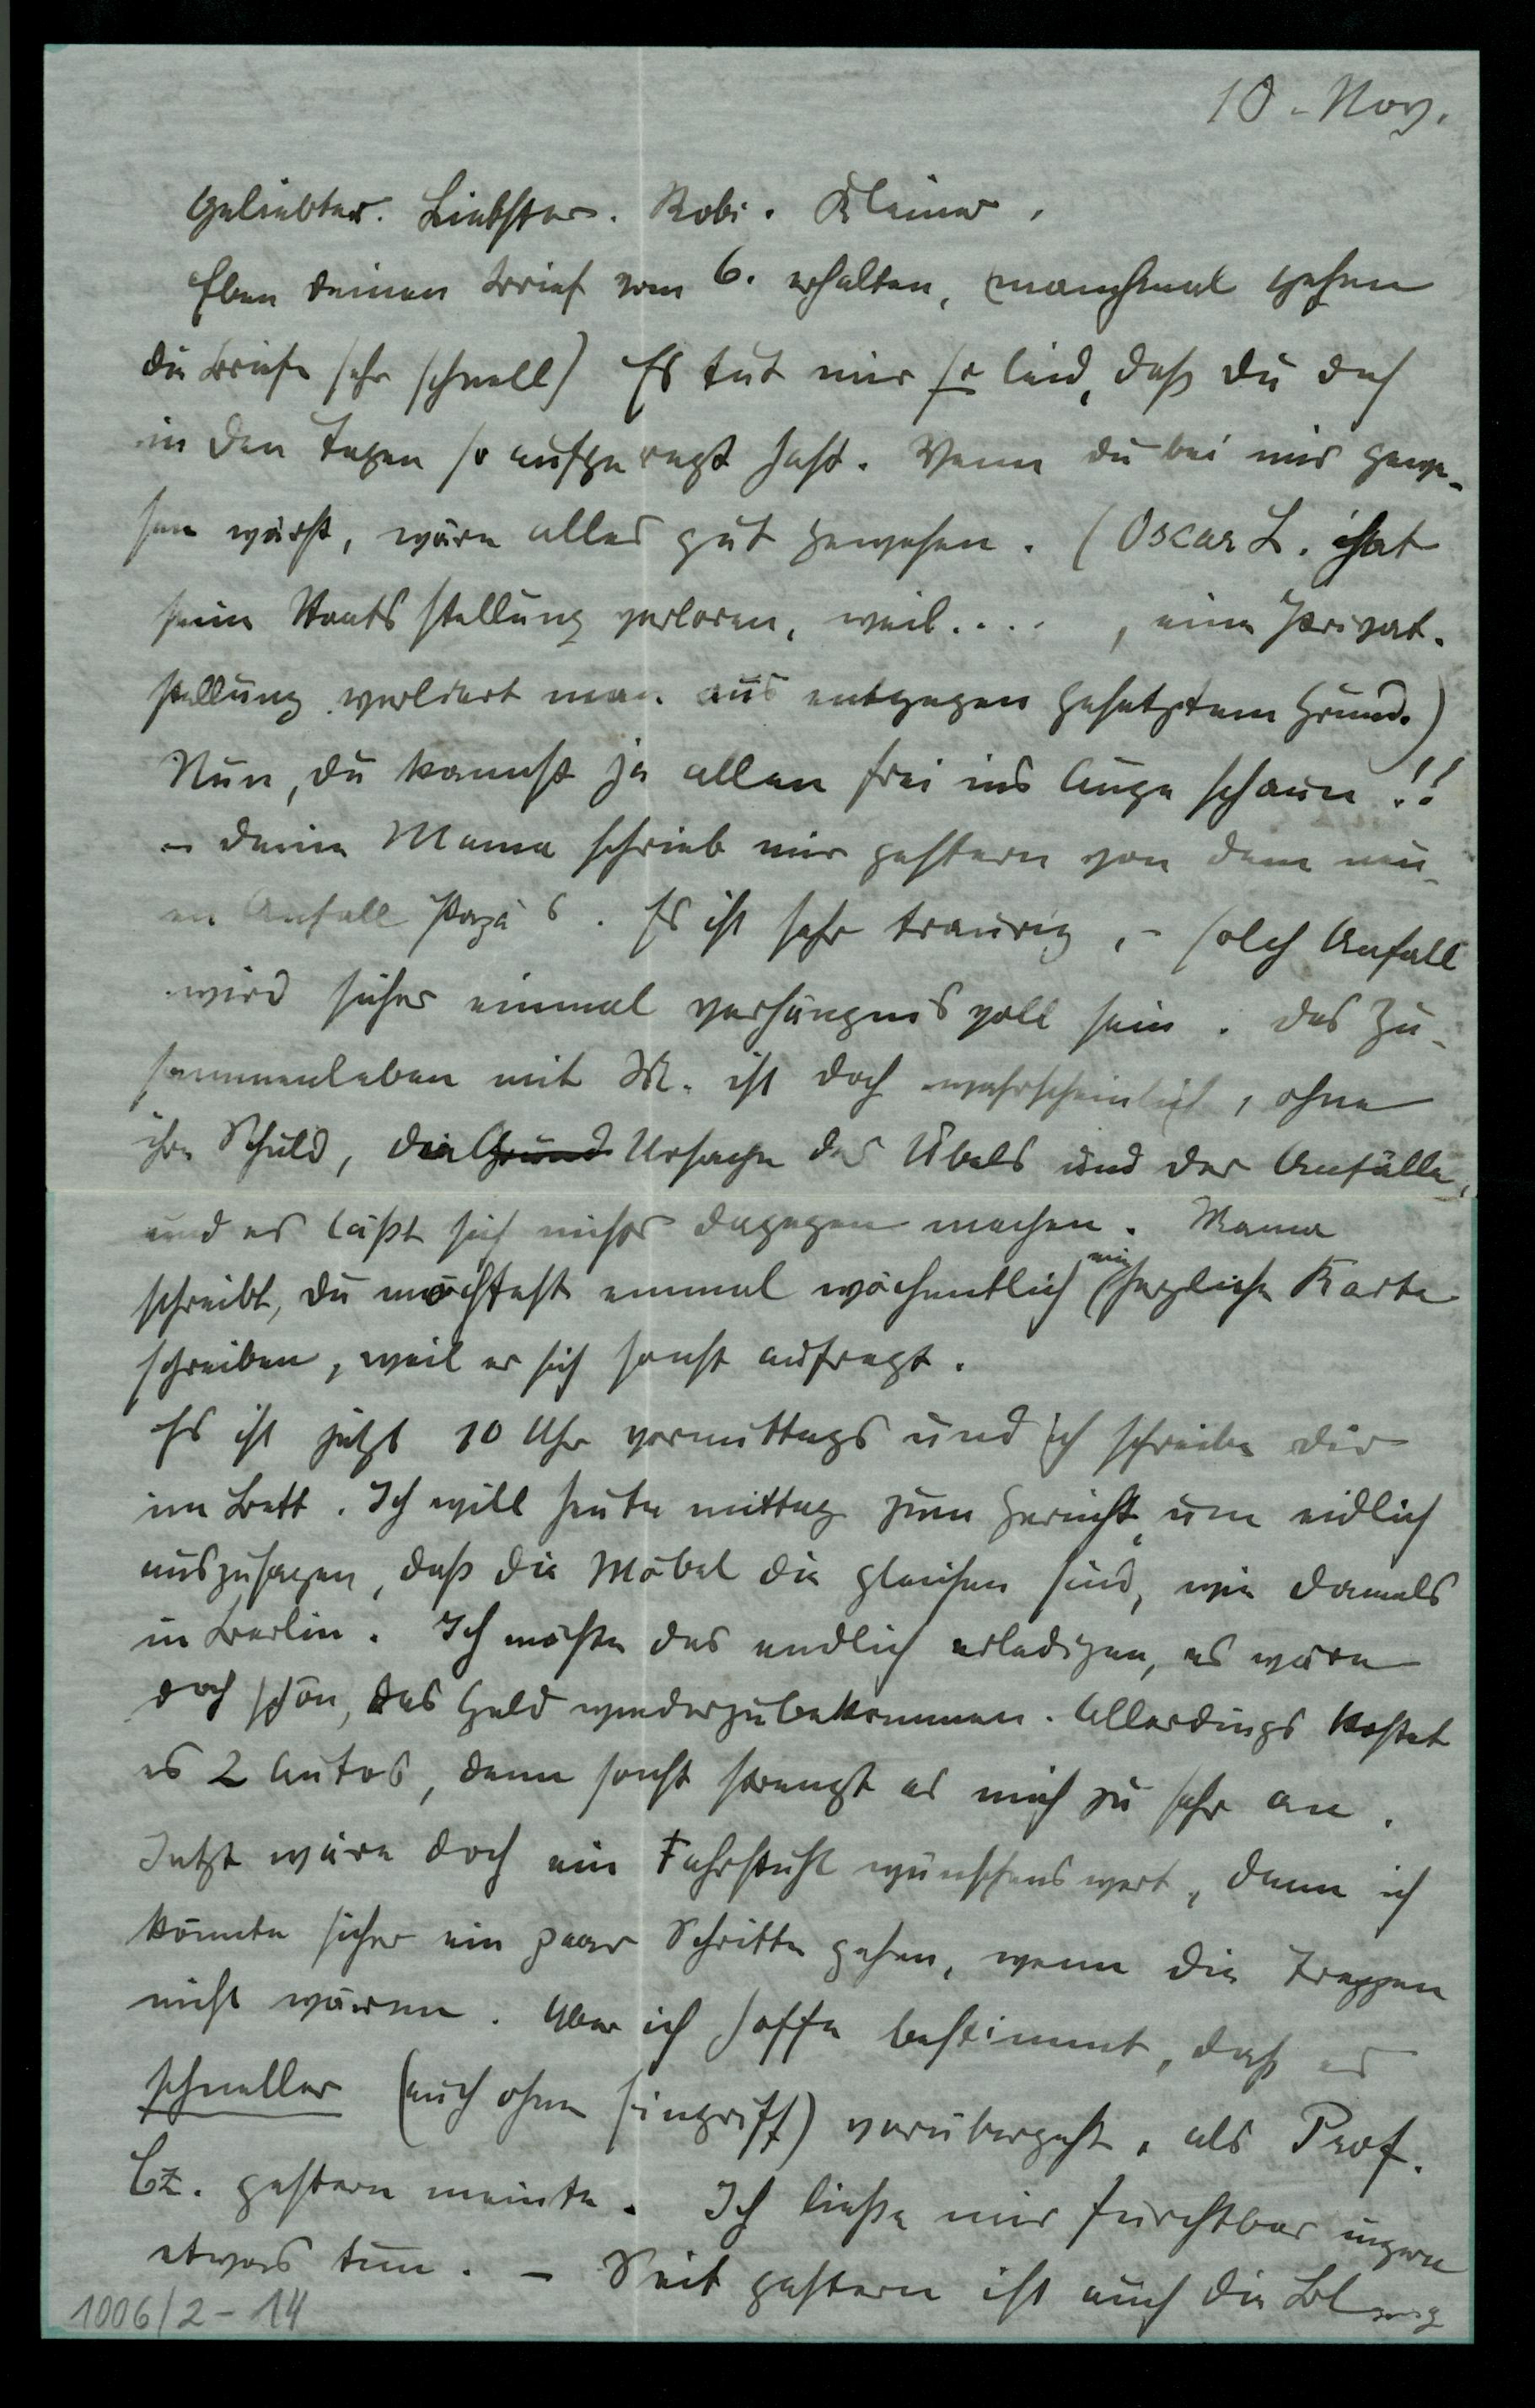 10. Nov.
Geliebter. Liebster. Robi. Kleiner.
Eben deinen Brief vom 6. erhalten, (manchmal gehen
die Briefe sehr schnell) Es tut mir so leid, daß du dich
in den Tagen so aufgeregt hast. Wenn du bei mir gewe-
sen wärst, wäre alles gut gewesen. (Oscar L. hat
seine Staatsstellung verloren, weil...., eine Privat-
stellung verliert man aus entgegengesetztem Grund.)
Nun, du kannst ja allen frei ins Auge schaun!!
– Deine Mama schrieb mir gestern von dem neu-
en Anfall Papa's. Es ist sehr traurig, – solch Anfall
wird sicher einmal verhängnisvoll sein. Das Zu-
sammenleben mit M. ist doch wahrscheinlich, ohne
ihre Schuld, die Grund Ursache des Übels und der Anfälle,
und es läßt sich nichts dagegen machen. Mama
schreibt, du möchtest einmal wöchentlich eine herzliche Karte
schreiben, weil er sich sonst aufregt.
Es ist jetzt 10 Uhr vormittags und ich schreibe dir
im Bett. Ich will heute mittag zum Gericht, um eidlich
auszusagen, daß die Möbel die gleichen sind, wie damals
in Berlin. Ich möchte das endlich erledigen, es wäre
doch schön, das Geld wiederzubekommen. Allerdings kostet
es 2 Autos, denn sonst strengt es mich zu sehr an.
Jetzt wäre doch ein Fahrstuhl wünschenswert, denn ich
könnte sicher ein paar Schritte gehen, wenn die Treppen
nicht wären. Aber ich hoffe bestimmt, daß es
schneller (auch ohne Eingriff) vorübergeht, als Prof.
Cz. gestern meinte. Ich ließe mir furchtbar ungern
etwas tun. – Seit gestern ist auch die
1006/2-14